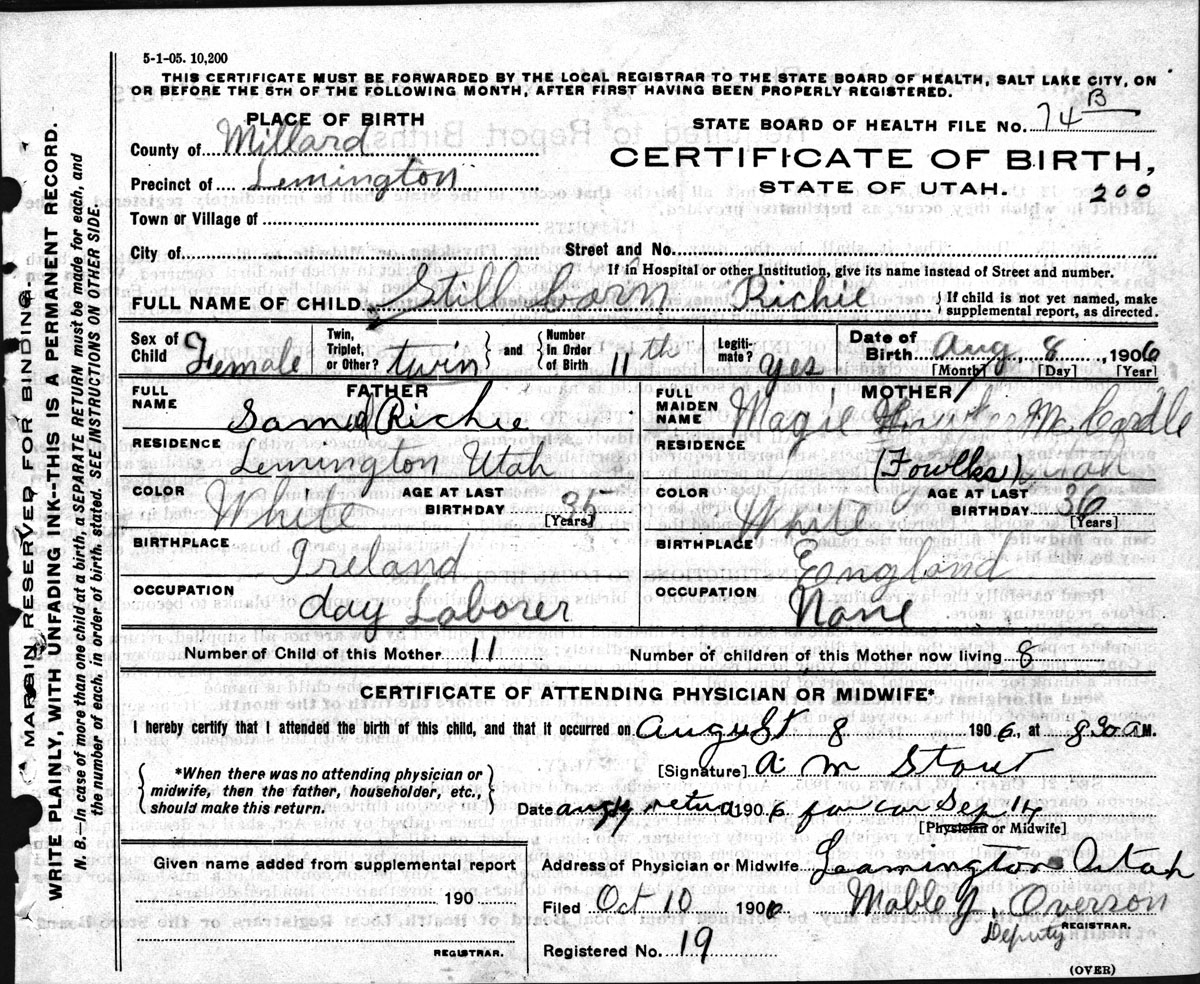 5-1-05. 10,200
THIS CERTIFICATE MUST BE FORWARDED BY THE LOCAL REGISTRAR TO THE STATE BOARD OF HEALTH, SALT LAKE CITY, ON
OR BEFORE THE 5TH OF THE FOLLOWING MONTH, AFTER FIRST HAVING BEEN PROPERLY REGISTERED.
PLACE OF BIRTH
STATE BOARD OF HEALTH FILE NO. 74 B
County of Millard
CERTIFICATE OF BIRTH,
Precinct of Lemington
STATE OF UTAH. 200
Town or Village of
City of Street and No.
If in Hospital or other Institution, give its name instead of Street and number.
FULL NAME OF CHILD Still born Richie {If child is not yet named, make supplemental report, as directed.
Sex of Child Female Twin, Triplet, or Other? twin } and { Number in Order of Birth 11th Legitimate? yes Date of Birth Aug. 8, 1906
[Month] [Day] [Year]
FATHER
FULL NAME Samel Richie
MOTHER
FULL MAIDEN NAME Magie McCardle
RESIDENCE Lemington Utah
RESIDENCE (Fowlks)
COLOR White AGE AT LAST BIRTHDAY 36 [Years]
COLOR White AGE AT LAST BIRTHDAY 36 [Years]
BIRTHPLACE Ireland
BIRTHPLACE England
OCCUPATION day Laborer
OCCUPATION None
Number of Child of this Mother 11 Number of children of this Mother now living 8
CERTIFICATE OF ATTENDING PHYSICIAN OR MIDWIFE*
I hereby certify that I attended the birth of this child, and that it occurred on August 8 1906, at 8 30 a M.
{*When there was no attending physician or midwife, then the father, householder, etc., should make this return.}
[Signature] A M Stout
Date 1906 Sep 14
[Physician or Midwife]
Given name added from supplemental report
190
REGISTRAR.
Address of Physician or Midwife Leamington Utah
Filed Oct 10 1906 Mable J. Overson
Deputy REGISTRAR.
Registered No. 19
(OVER)
MARGIN RESERVED FOR BINDING.
WRITE PLAINLY, WITH UNFADING INK--THIS IS A PERMANENT RECORD.
N. B.—In case of more than one child at a birth, a SEPARATE RETURN must be made for each, and
the number of each, in order of birth, stated. SEE INSTRUCTIONS ON OTHER SIDE.